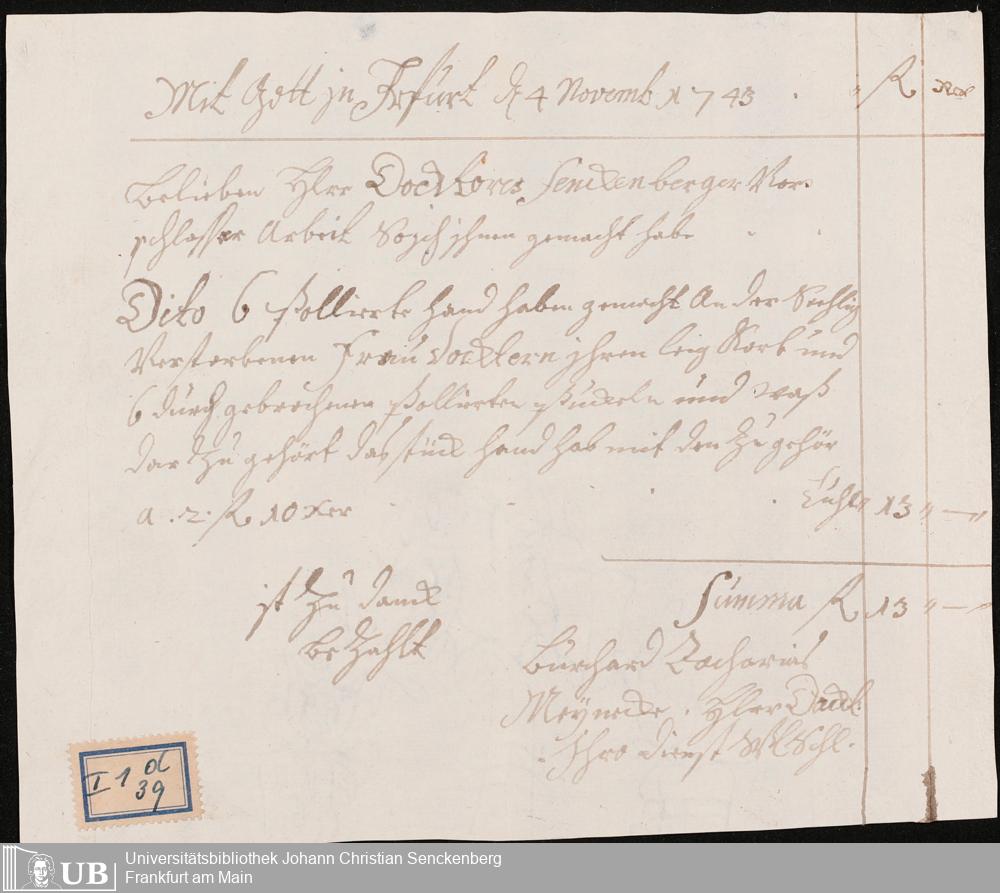 Mit Gott jn Frfurt d 4 Novemb 1743 fl Xer
Belieben Hler Docktores Senckenberger Vor
schlosser Arbeit So jch jhnen gemacht habe
Dito 6 pollierte Hand haben gemacht An der Seehlig
Verstorbenen Frau Docktern jhren leig Korb und
6 durch gebrochenen pollierten und waß
dar Zu gehört das stück Hand hab mit den Zu gehör
a. 2. fl 10 Xer 13 " — "
Summa fl 13 " — "
ist Zu danck
beZahlt
Burchard Zacharias
Meynecke. Hler
Ihro dienst
I 1 d
39
UB
Universitätsbibliothek Johann Christian Senckenberg
Frankfurt am Main